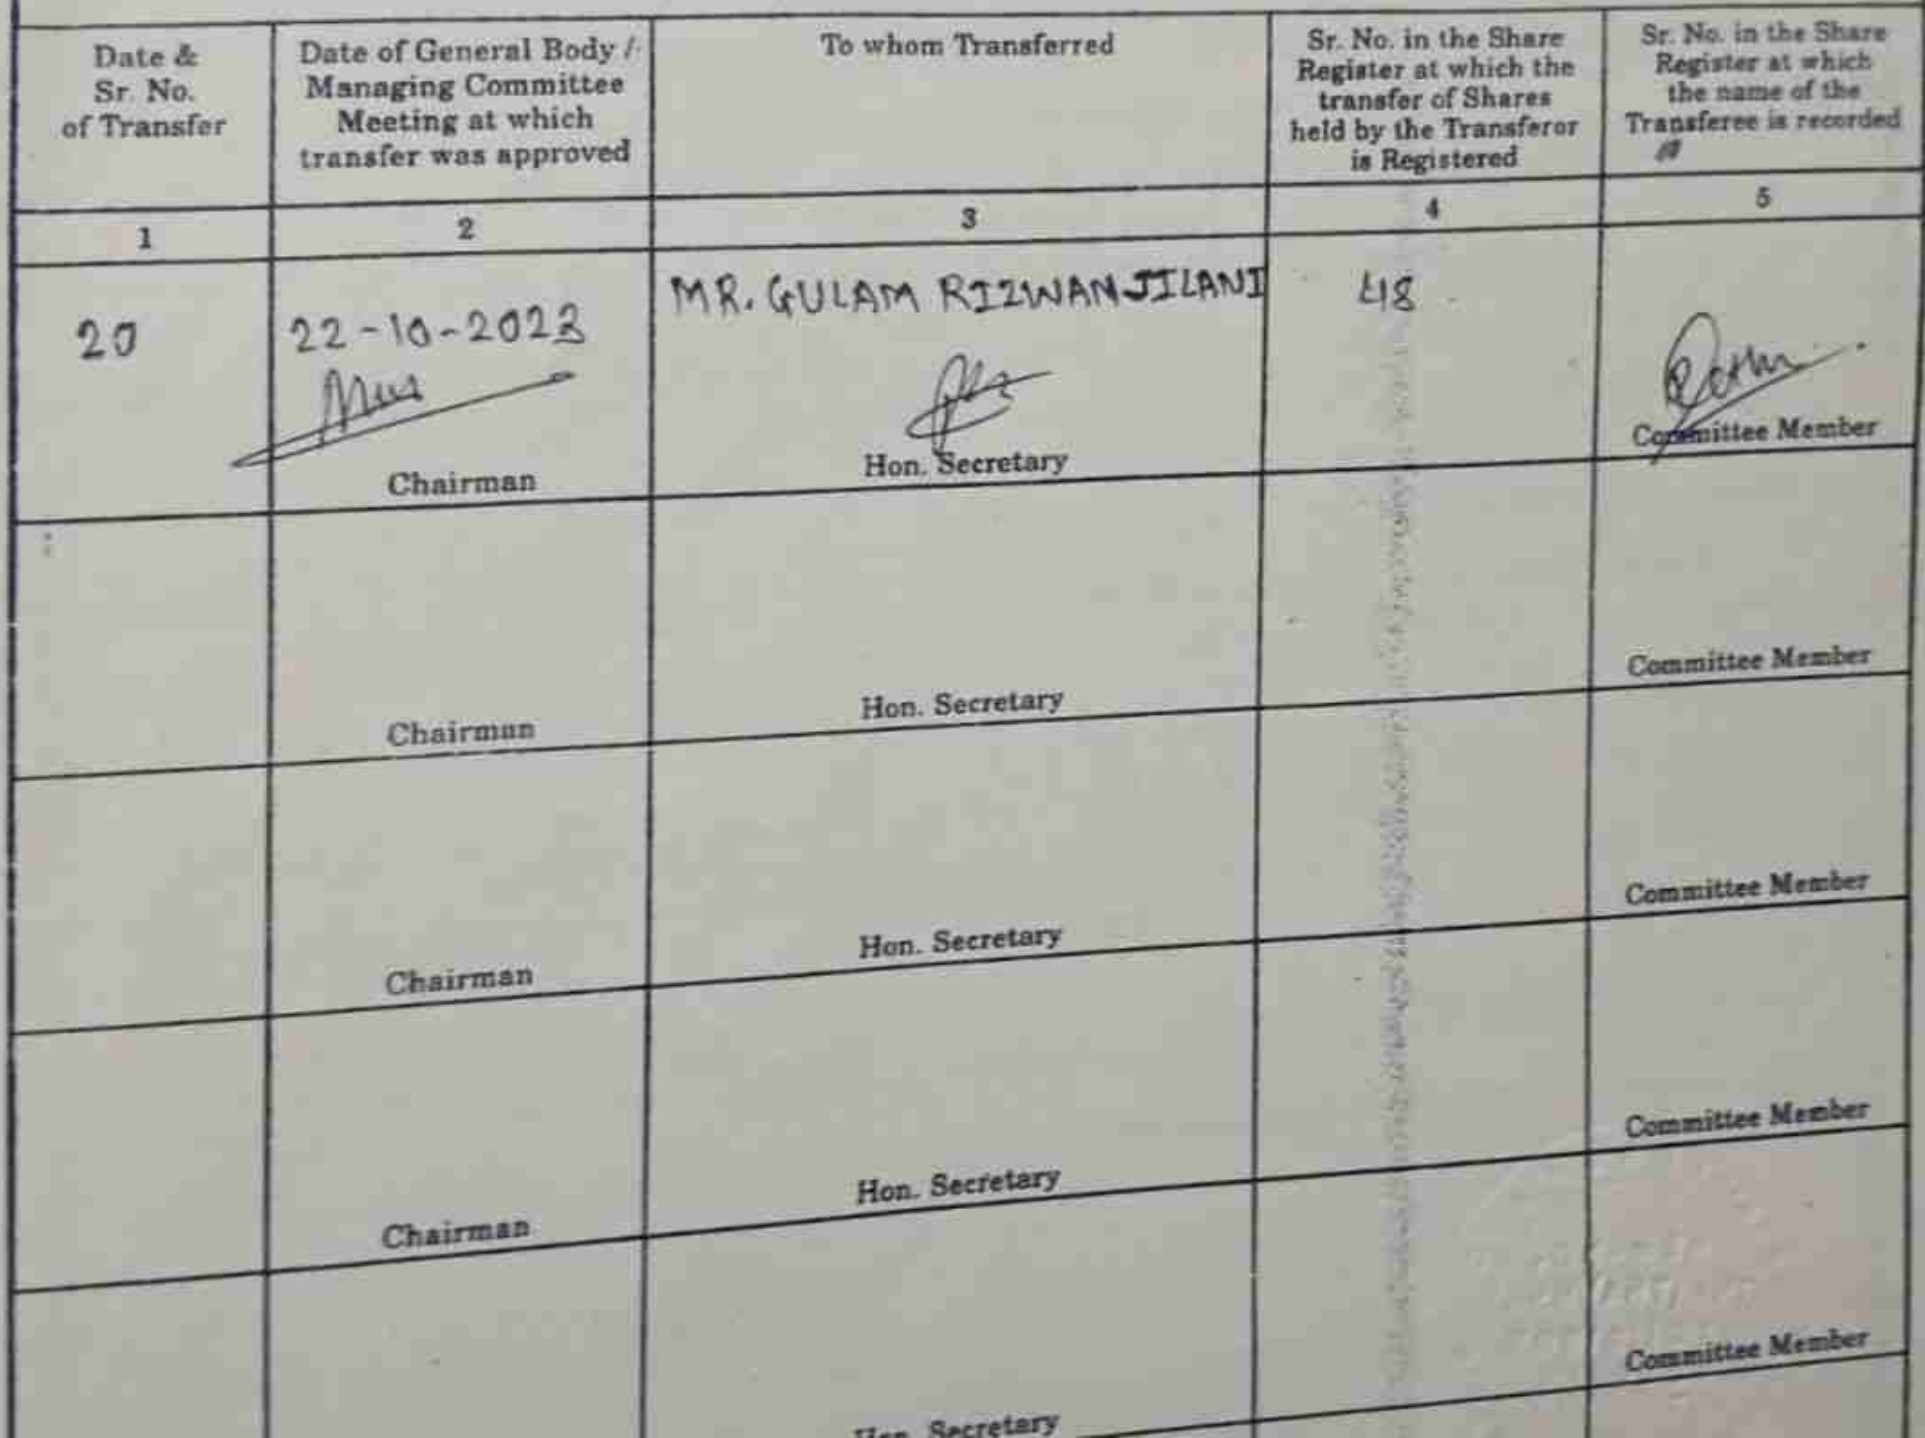 Date &
Sr. No.
of Transfer
Date of General Body /
Managing Committee
Meeting at which
transfer was approved
To whom Transferred
Sr. No. in the Share
Register at which the
transfer of Shares
held by the Transferor
is Registered
Sr. No. in the Share
Register at which
the name of the
Transferee is recorded
1
2
3
4
5
20
22-10-2023
MR. GULAM RIZWAN JILANI
48
Chairman
Hon. Secretary
Committee Member
Chairman
Hon. Secretary
Committee Member
Chairman
Hon. Secretary
Committee Member
Chairman
Hon. Secretary
Committee Member
Hon. Secretary
Committee Member